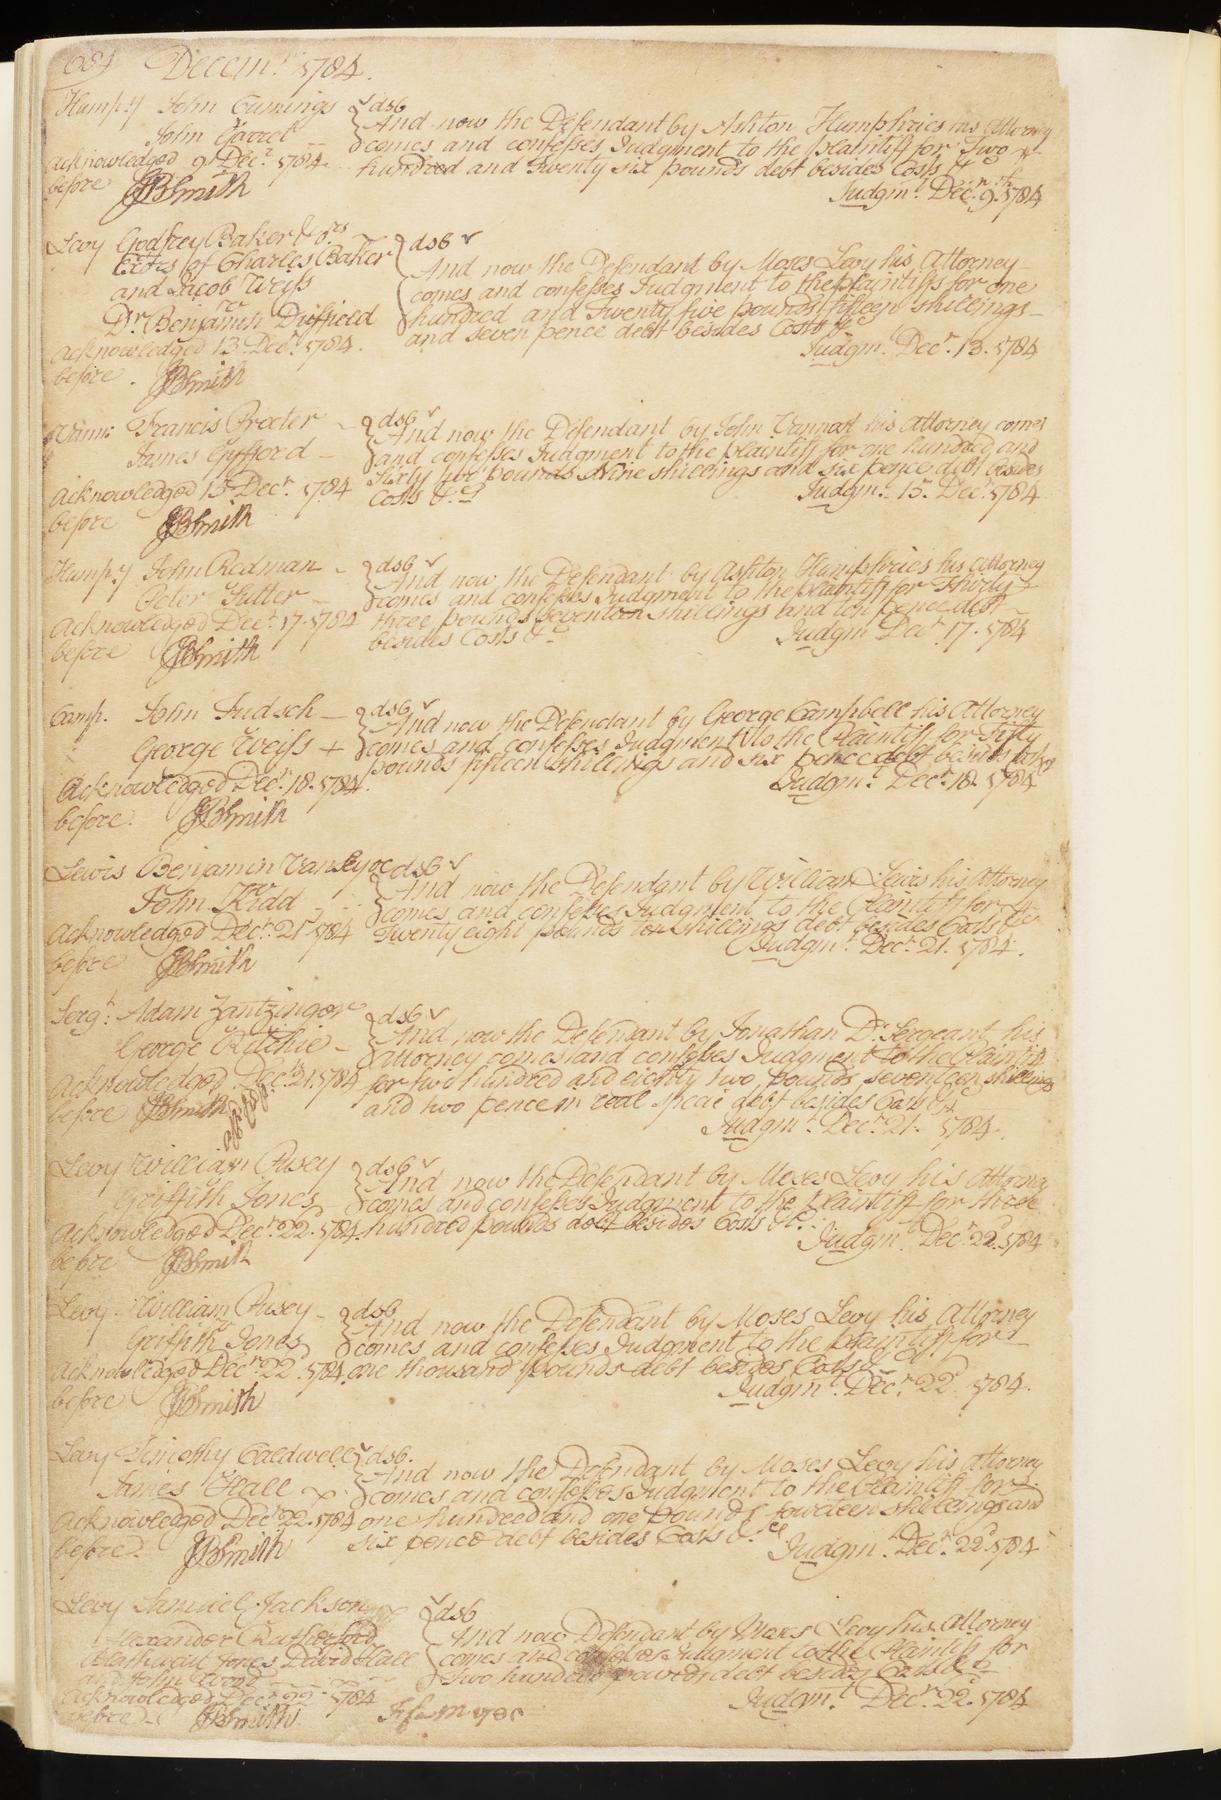 684 Decem.r 1784.
Hump.y John Cumings dsb
John Garret
And now the Defendant by Ashton Humphries his Attorney
comes and confesses Judgment to the plaintiff for Two
hundred and Twenty six pounds debt besides Costs &
Acknowledged 9 Dec.r 1784
before JBSmith
Judgm.t Dec.r 9.th 1784
Levy Godfrey Baker & o.rs dsb
Exors of Charles Baker
and Jacob Weiss
vs
Dr. Benjamin Duffield
And now the Defendant by Moses Levy his Attorney
comes and confesses Judgment to the plaintiffs for one
hundred and Twenty five pounds fifteen shillings
and seven pence debt besides Costs &c
Acknowledged 13. Dec.r 1784.
before. JBSmith
Judgm.t Dec.r 13. 1784
Vann: Francis Procter dsb
James Gyfford
And now the Defendant by John Vannah his Attorney comes
and confesses Judgment to the plaintiff for one hundred and
Sixty two pounds Nine shillings and six pence debt besides
Costs &c
Acknowledged 15 Dec.r 1784
before JBSmith
Judgm.t 15. Dec.r 1784
Hump.y John Redman dsb
Peter Sutter
And now the Defendant by Ashton Humphries his Attorney
comes and confesses Judgment to the plaintiff for Thirty
three pounds seventeen shillings and ten pence debt
besides Costs &c
Acknowledged Dec.r 17. 1784
before JBSmith
Judgm.t Dec.r 17. 1784
Camp. John Fudsch dsb
George Weiss
And now the Defendant by George Campbell his Attorney
comes and confesses Judgment to the Plaintiff for Fifty
pounds fifteen shillings and six pence debt besides Costs
Acknowledged Dec.r 18. 1784.
before. JBSmith
Judgm.t Dec.r 18. 1784
Lewis Benjamin Vanleyoe dsb
vs
John Kidd
And now the Defendant by William Lewis his Attorney
comes and confesses Judgment to the Plaintiff for
Twenty eight pounds ten shillings debt besides Costs &c
Acknowledged Dec.r 21 1784
before JBSmith
Judgm.t Dec.r 21. 1784.
Serg.t Adam Zantzinger dsb
George Ritchie
And now the Defendant by Jonathan D. Sergeant his
attorney comes and confesses Judgment to the Plaintiff
for two hundred and eighty two pounds seventeen shillings
and two pence in real specie debt besides Costs &c
Acknowledged Dec.r 21. 1784
before JBSmith
Judgm.t Dec.r 21. 1784.
Levy William Pusey dsb
vs
Griffith Jones
And now the Defendant by Moses Levy his Attorney
comes and confesses Judgment to the plaintiff for three
hundred pounds debt besides Costs &c.
Acknowledged Dec.r 22. 1784.
before JBSmith
Judgm.t Dec.r 22.d 1784
Levy William Pusey dsb
vs
Griffith Jones
And now the Defendant by Moses Levy his Attorney
comes and confesses Judgment to the plaintiff for
one thousand pounds debt besides Costs &c
Acknowledged Dec.r 22. 1784.
before JBSmith
Judgm.t Dec.r 22.d 1784.
Levy Timothy Caldwell dsb.
James Hall
And now the Defendant by Moses Levy his Attorney
comes and confesses Judgment to the Plaintiff for
one hundred and one pounds fourteen shillings and
six pence debt besides Costs &c
Acknowledged Dec.r 22. 1784
before. JBSmith
Judgm.t Dec.r 22.d 1784
Levy Samuel Jackson dsb
Alexander Rutherford
Blathwait Jones David Hall
and John Wood
And now Defendant by Moses Levy his Attorney
comes and confesses Judgment to the Plaintiff for
Two hundred pounds debt besides Costs &c
Acknowledged Dec.r 22.d 1784
before. JBSmith
Judgm.t Dec.r 22.d 1784